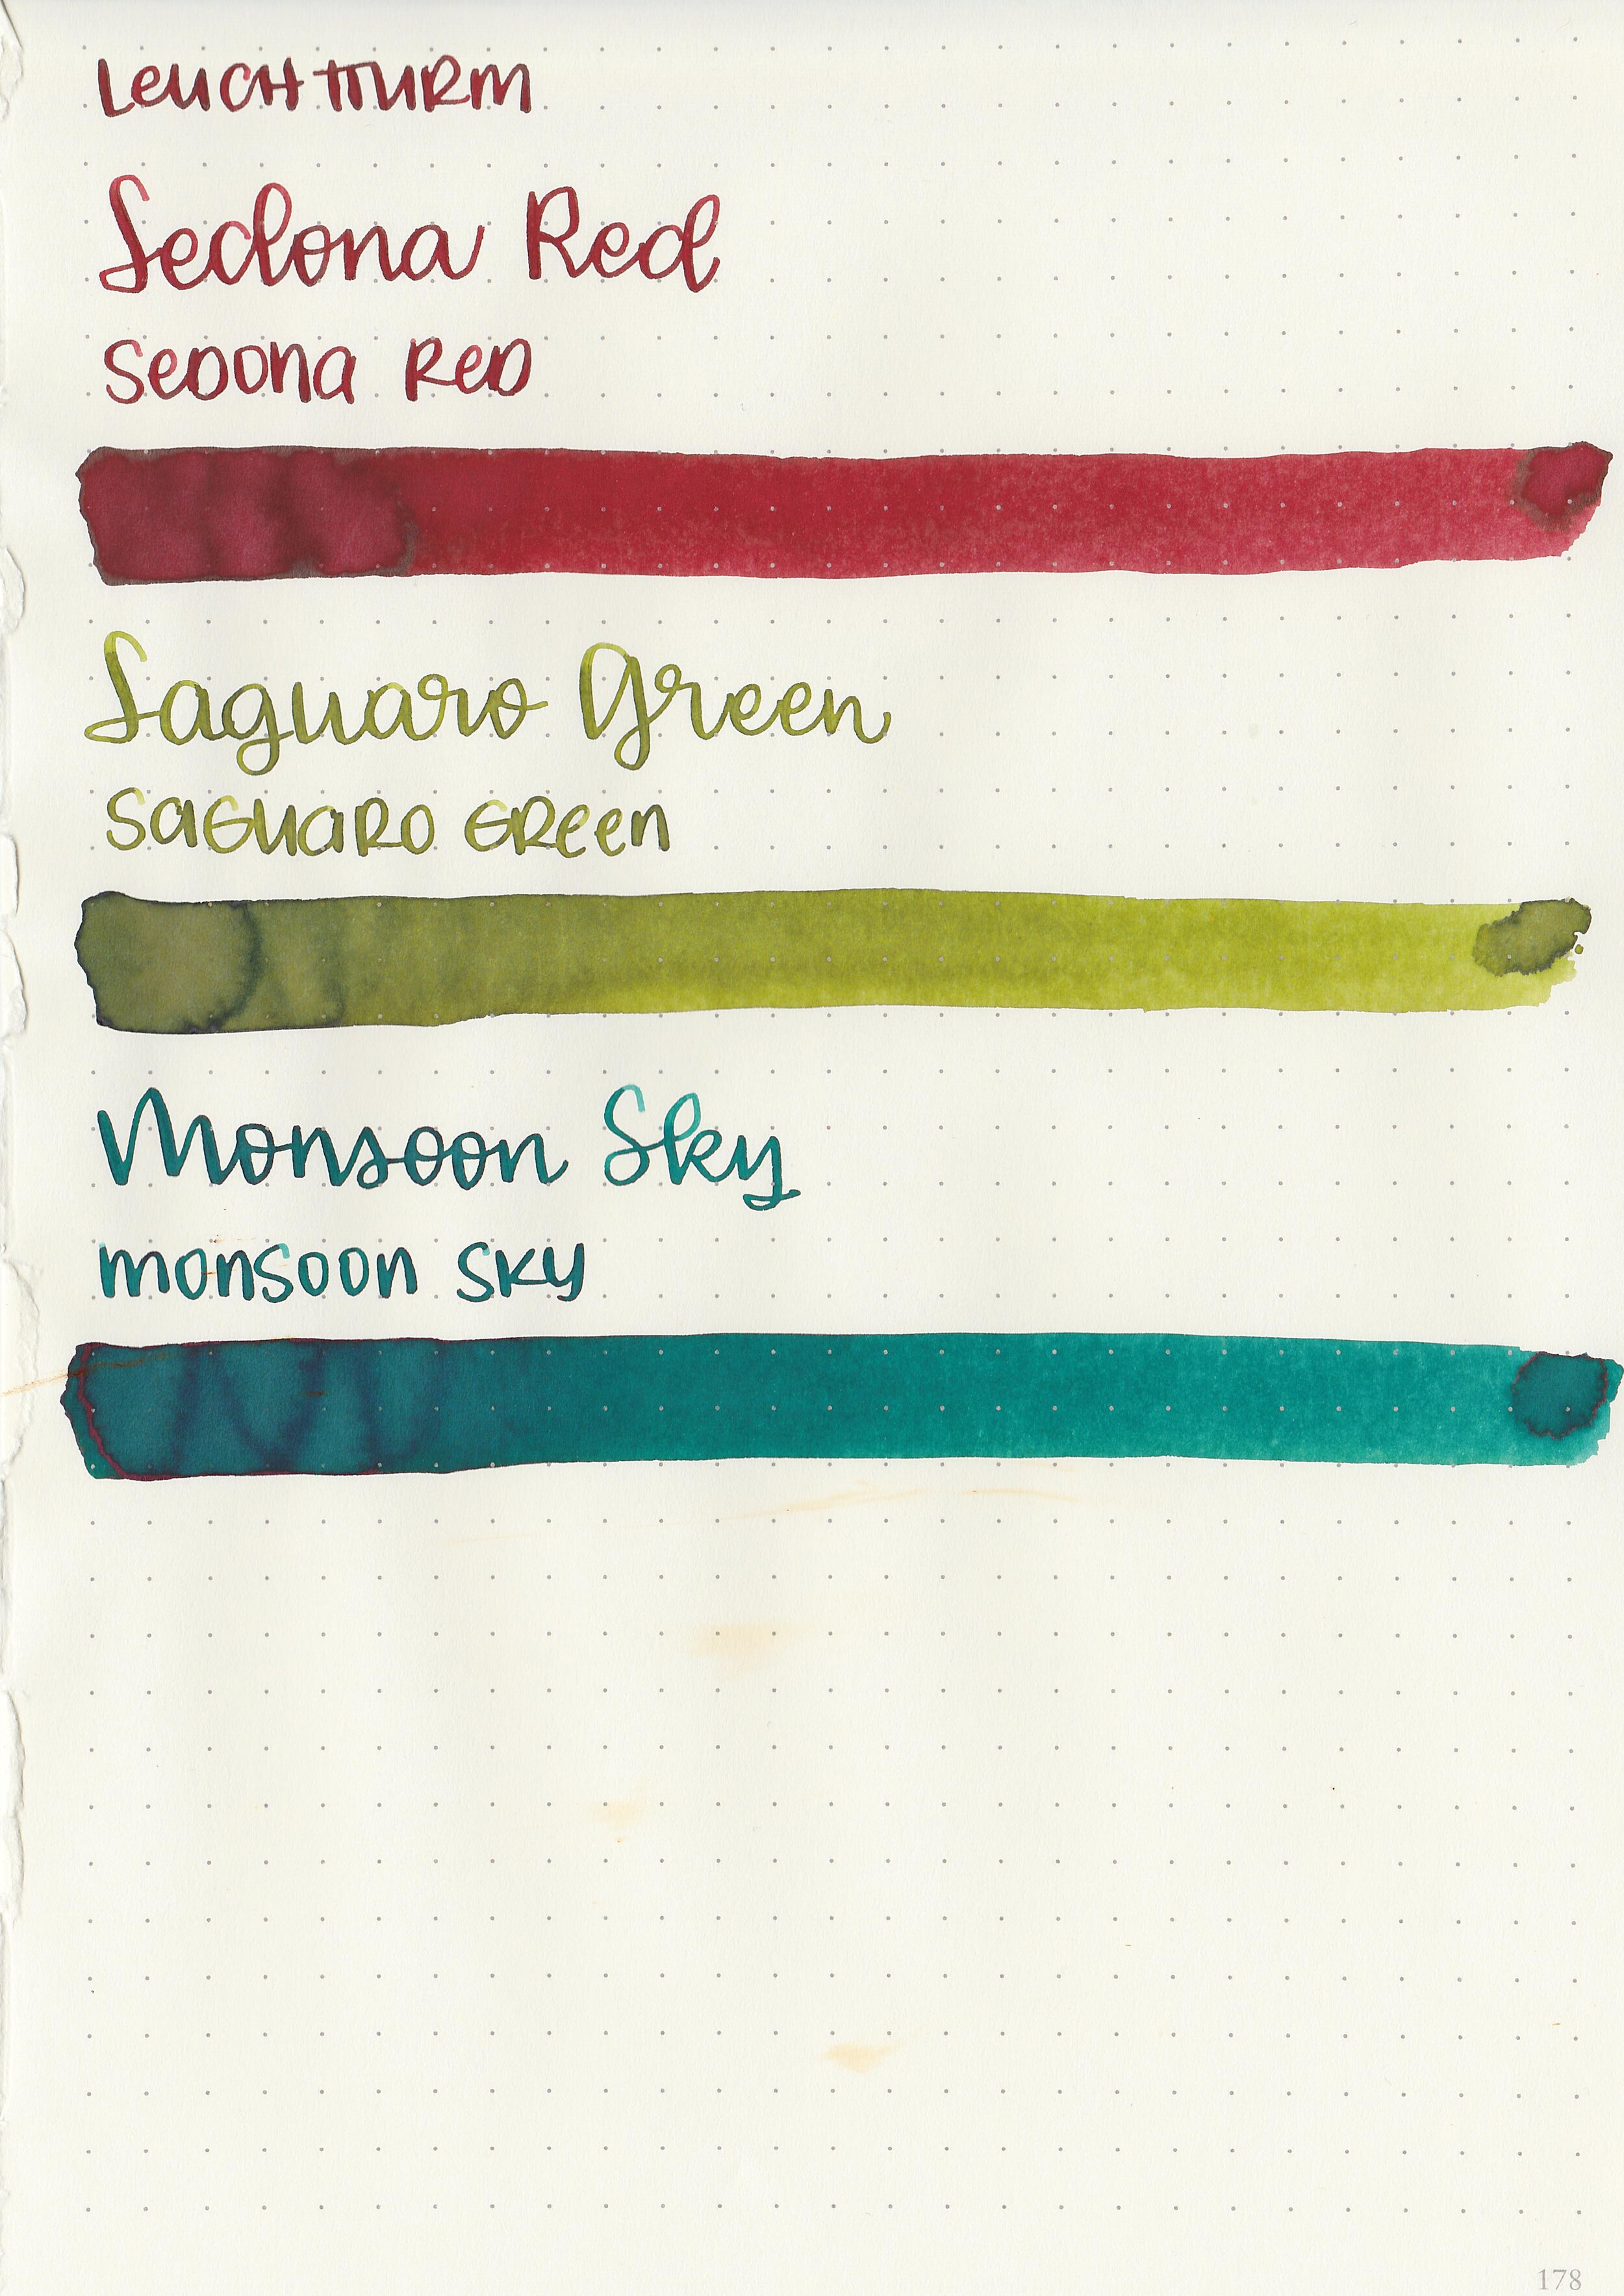 Leuchtturm
Sedona Red
Sedona Red
Saguaro Green
Saguaro Green
Monsoon Sky
Monsoon Sky
178